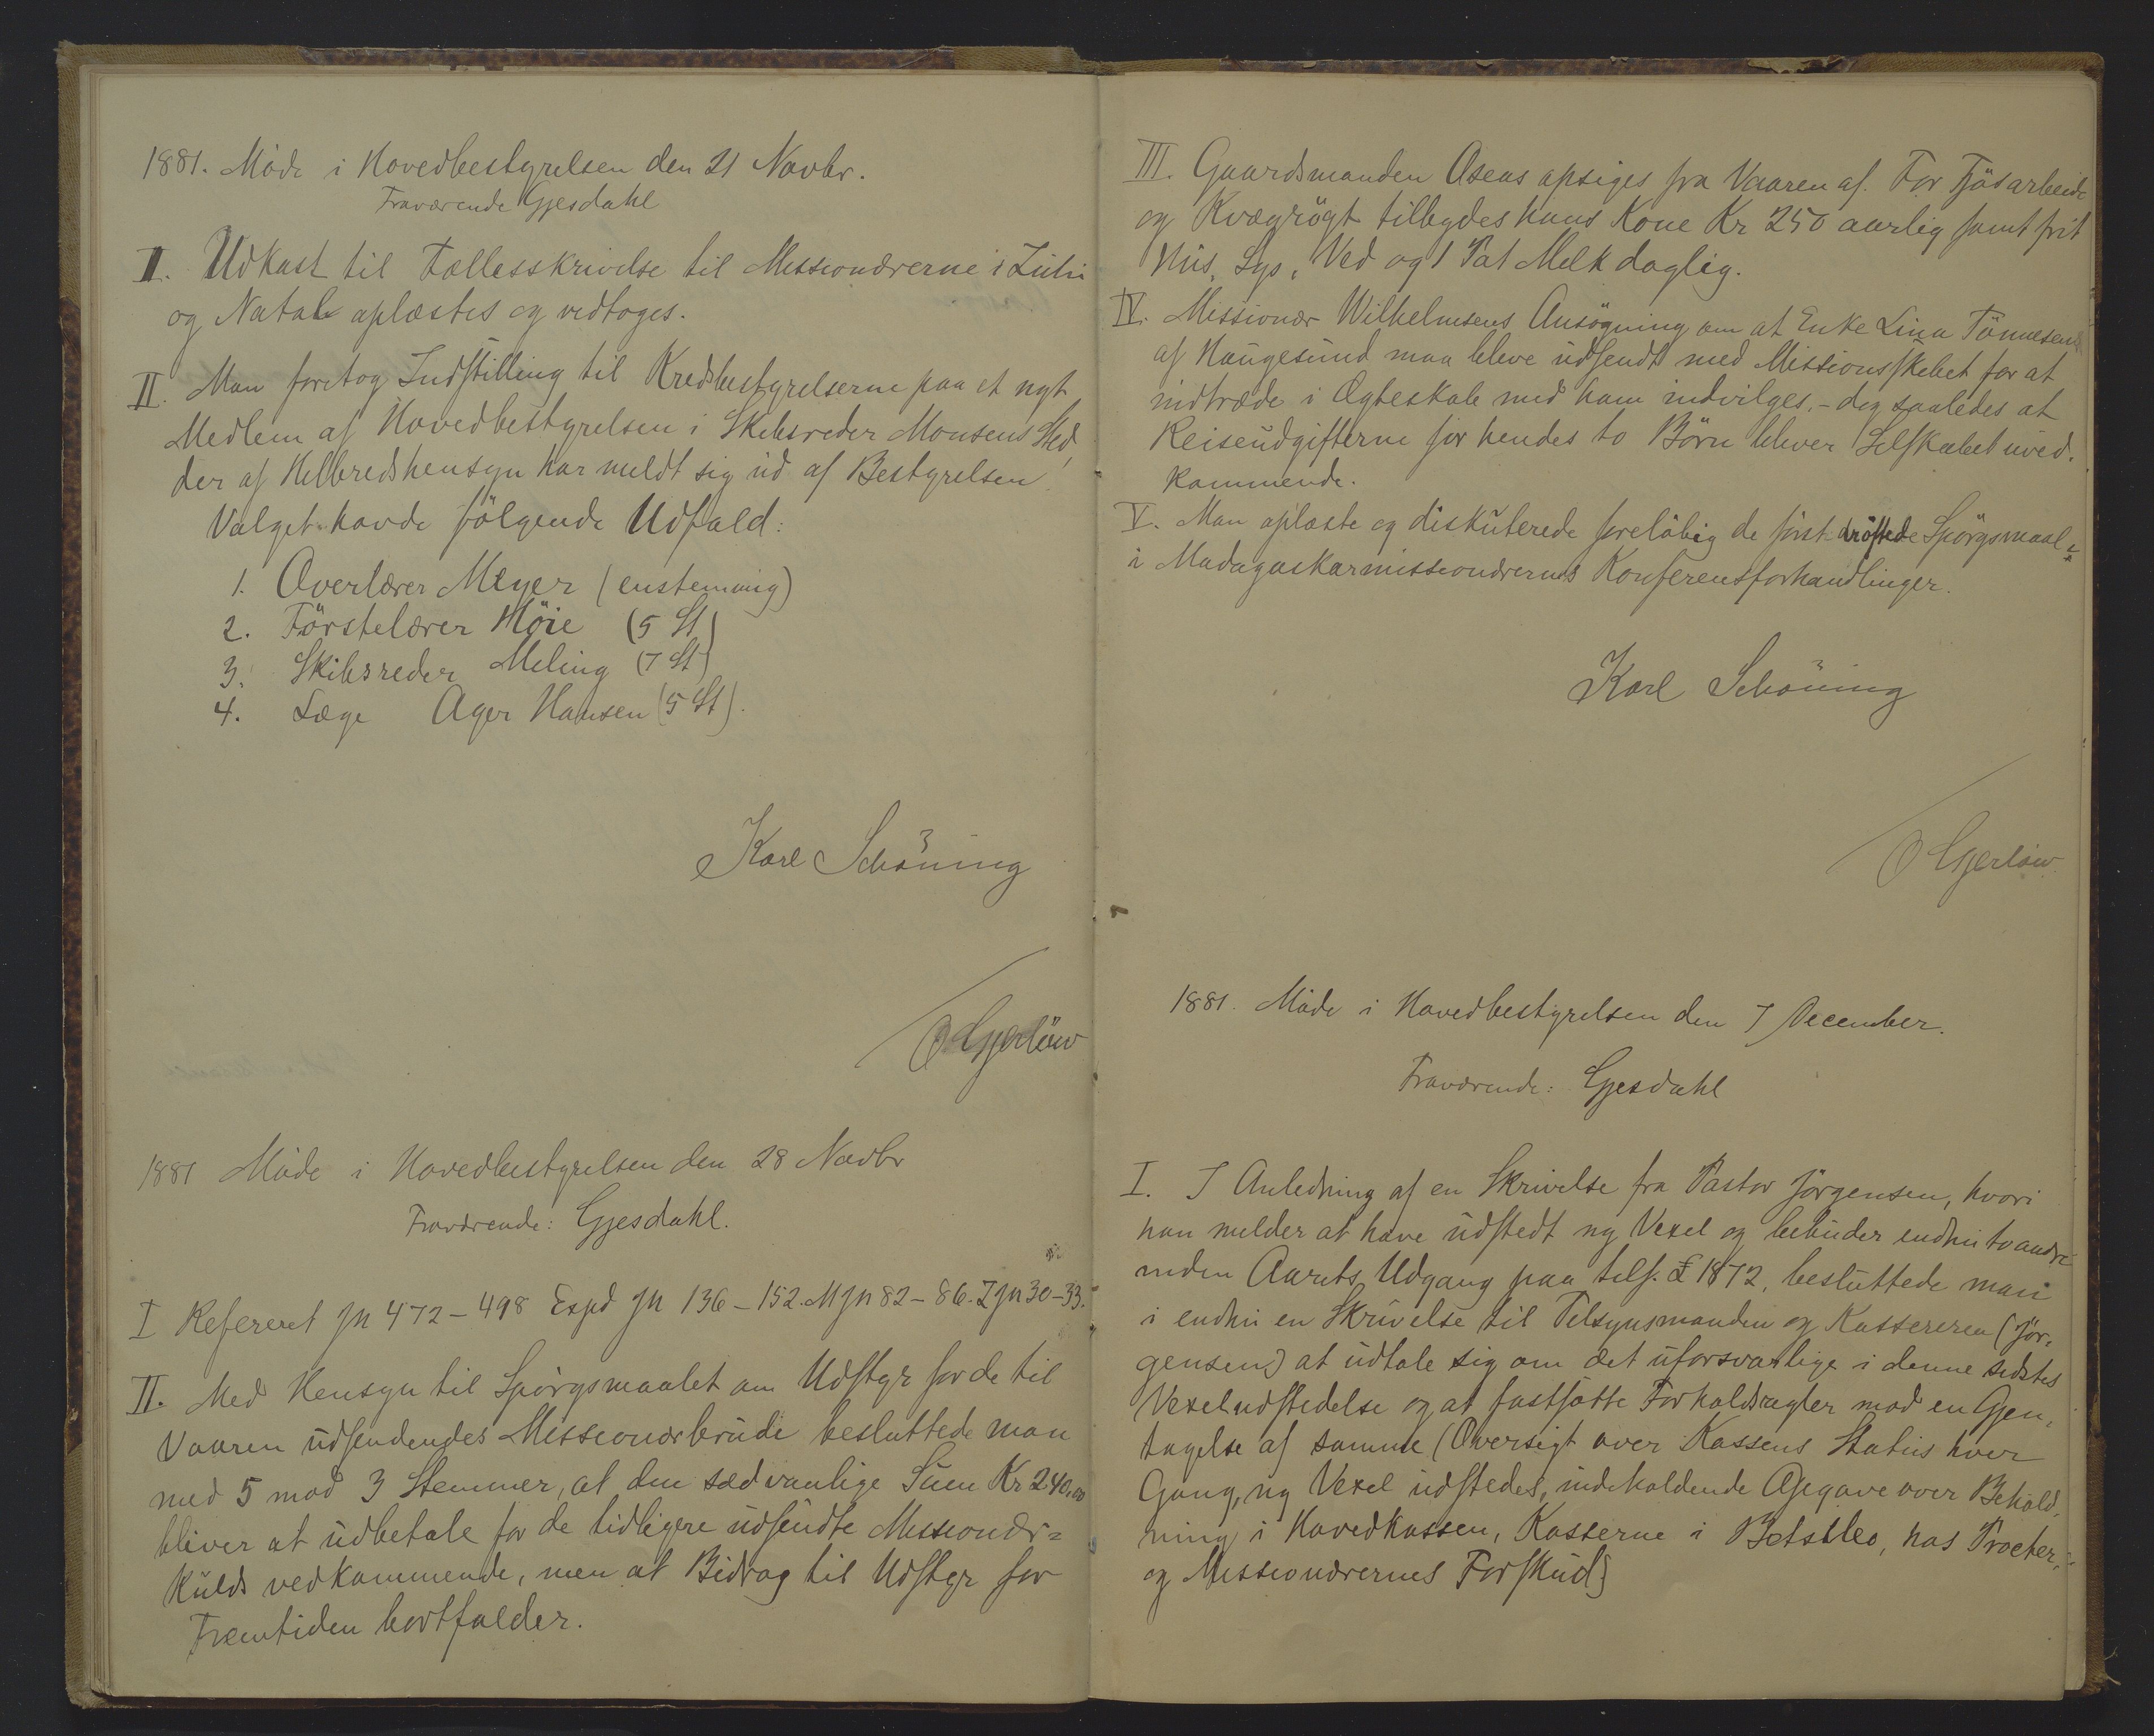 1881. Möde i Hovedbestyrelsen den 21 Novbr.
Fraværende Gjesdahl
I. Udkast til Fællesskrivelse til Missionærerne i Zulu
og Natal oplæstes og vedtoges.
II. Man foretog Indstilling til Kredsbestyrelserne paa et nyt
Medlem af Hovedbestyrelsen i Skibsreder Monsens Sted,
der af Helbredshensyn har meldt sig ud af Bestyrelsen.
Valget havde fölgende Udfald:
1. Overlærer Meyer (enstemmig)
2. Förstelærer Höie (5 St)
3. Skibsreder Meling (7 St)
4. Læge Ager Hansen (5 St).
Karl Schöning
O Gjerlöw
1881 Möde i Hovedbestyrelsen den 28 Novbr
Fraværende: Gjesdahl.
I Refereret Jn 472 – 498 Expd Jn 136 – 152. M Jn 82 – 86. Z Jn 30 – 33.
II. Med Hensyn til Spörgsmaalet om Udstyr for de til
Vaaren udsendendes Missionærbrude besluttede man
med 5 mod 3 Stemmer, at den sædvanlige Sum Kr 240.00
bliver at udbetale for de tidligere udsendte Missionær=
kulds vedkommende, men at Bidrag til Udstyr for
Fremtiden bortfalder.
III. Gaardsmanden Aseas opsiges fra Vaaren af. For Fjösarbeide
og Kvægrögt tilbydes hans Kone Kr 250 aarlig samt frit
Hus, Lys, Ved og 1 Pot Melk daglig.
IV. Missionær Wilhelmsens Ansögning om at Enke Lina Tönnesen
af Haugesund maa blive udsendt med Missionsskibet for at
indtræde i Ægteskab med ham indvilges, – dog saaledes at
Reiseudgifterne for hendes to Börn bliver Selskabet uved-
kommende.
V. Man oplæste og diskuterede forelöbig de först dröftede Spörgsmaal
i Madagaskarmissionærernes Konferensforhandlinger.
Karl Schöning
O Gjerlöw
1881. Möde i Hovedbestyrelsen den 7 December.
Fraværende: Gjesdahl
I. I Anledning af en Skrivelse fra Pastor Jörgensen, hvori
han melder at have udstedt ny Vexel og bebuder endnu to andre
inden Aarets Udgang paa tils. £ 1872, besluttede man
i endnu en Skrivelse til Tilsynsmanden og Kassereren (Jör-
gensen) at udtale sig om det uforsvarlige i denne sidstes
Vexeludstedelse og at fastsætte Forholdsregler mod en Gjen-
tagelse af samme (Oversigt over Kassens Status hver
Gang, ny Vexel udstedes, indeholdende Opgave over Behold-
ning i Hovedkassen, Kasserne i Betsileo, hos Procter,
og Missionærernes Forskud)